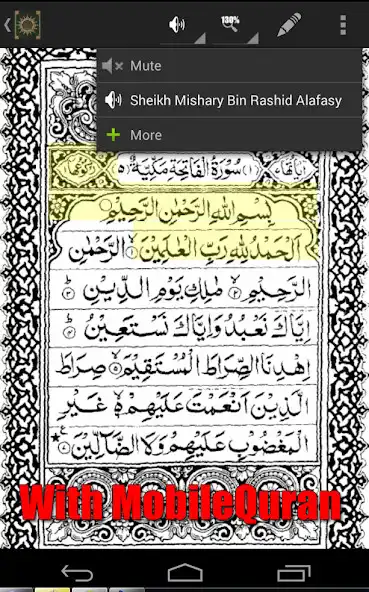 130%
Mute
Sheikh Mishary Bin Rashid Alafasy
More
سُوْرَةُ الْفَاتِحَةِ مَكِّيَّةٌ
بِسْمِ اللهِ الرَّحْمٰنِ الرَّحِيْمِ
اَلْحَمْدُ لِلّٰهِ رَبِّ الْعٰلَمِيْنَ ۙ‏ ۱ الرَّحْمٰنِ
الرَّحِيْمِ ۙ ۲ مٰلِكِ يَوْمِ الدِّيْنِ ۳
اِيَّاكَ نَعْبُدُ وَاِيَّاكَ نَسْتَعِيْنُ
اِهْدِنَا الصِّرَاطَ الْمُسْتَقِيْمَ ۙ ۵ صِرَاطَ
الَّذِيْنَ اَنْعَمْتَ عَلَيْهِمْ ۙ غَيْرِ
الْمَغْضُوْبِ عَلَيْهِمْ وَلَا الضَّآلِّيْنَ
With MobileQuran